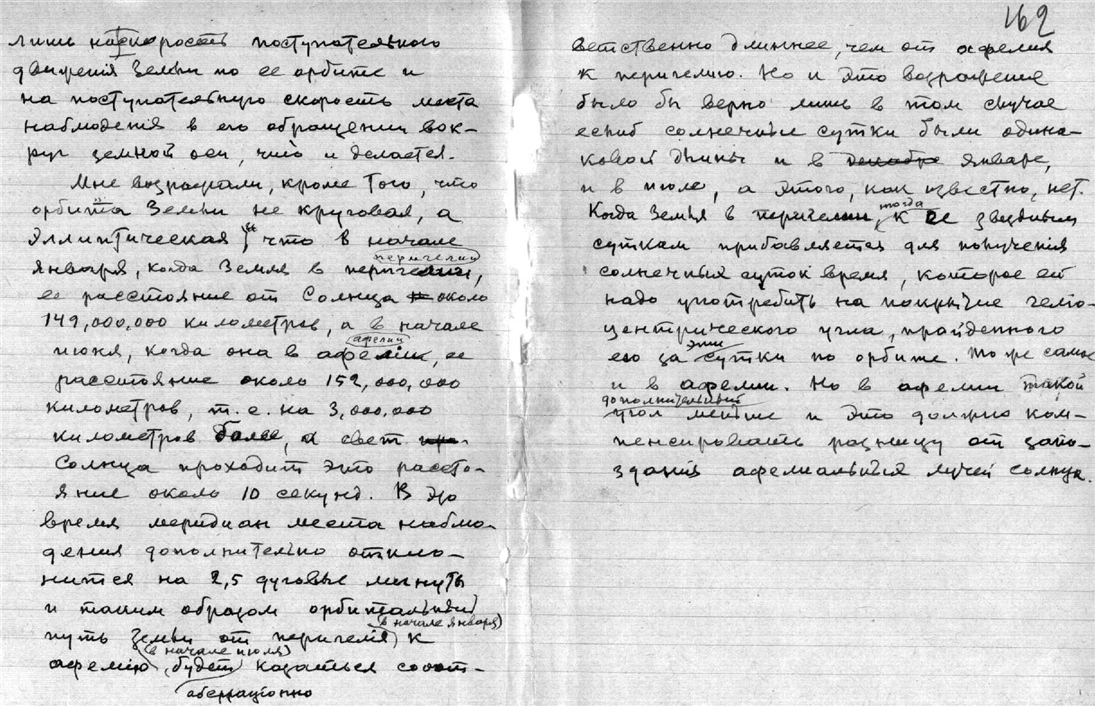 162
лишь на скорость поступательного
движенія Земли по ее орбите и
на поступательную скорость места
наблюденія в его обращении вок-
руг земной оси, что и делается.
Мне возражали, кроме того, что
орбита Земли не круговая, а
эллиптическая, что в начале
января, когда Земля в перигелии,
ее расстояние от Солнца около
149,000,000 километров, а в начале
июня, когда она в афелии, ее
расстояние около 152,000,000
километров, т.е. на 3,000,000
километров более, а свет
Солнца проходит это рассто-
яние около 10 секунд. В это
время меридиан места наблю-
дения дополнительно откло-
нится на 2,5 дуговые минуты
и таким образом орбитальный
путь Земли от перигелія (в начале января) к
афелию (в начале июля) будет аберраціонно казаться соот-
ветственно длиннее, чем от афелия
к перигелию. Но и это возражение
было бы верно лишь в том случае
если б солнечные сутки были одина-
ковой длины и в декабре январе,
и в июле, а этого, как известно, нет.
Когда Земля в перигелии, тогда к ее звездным
суткам прибавляется для полученія
солнечных суток время, которое ей
надо употребить на покрытие гелио-
центрического угла, пройденного
ею за эти сутки по орбите. То же самое
и в афелии. Но в афелии такой
дополнительный
угол меньше и это должно ком-
пенсировать разницу от запо-
зданія афелиальных лучей солнца.